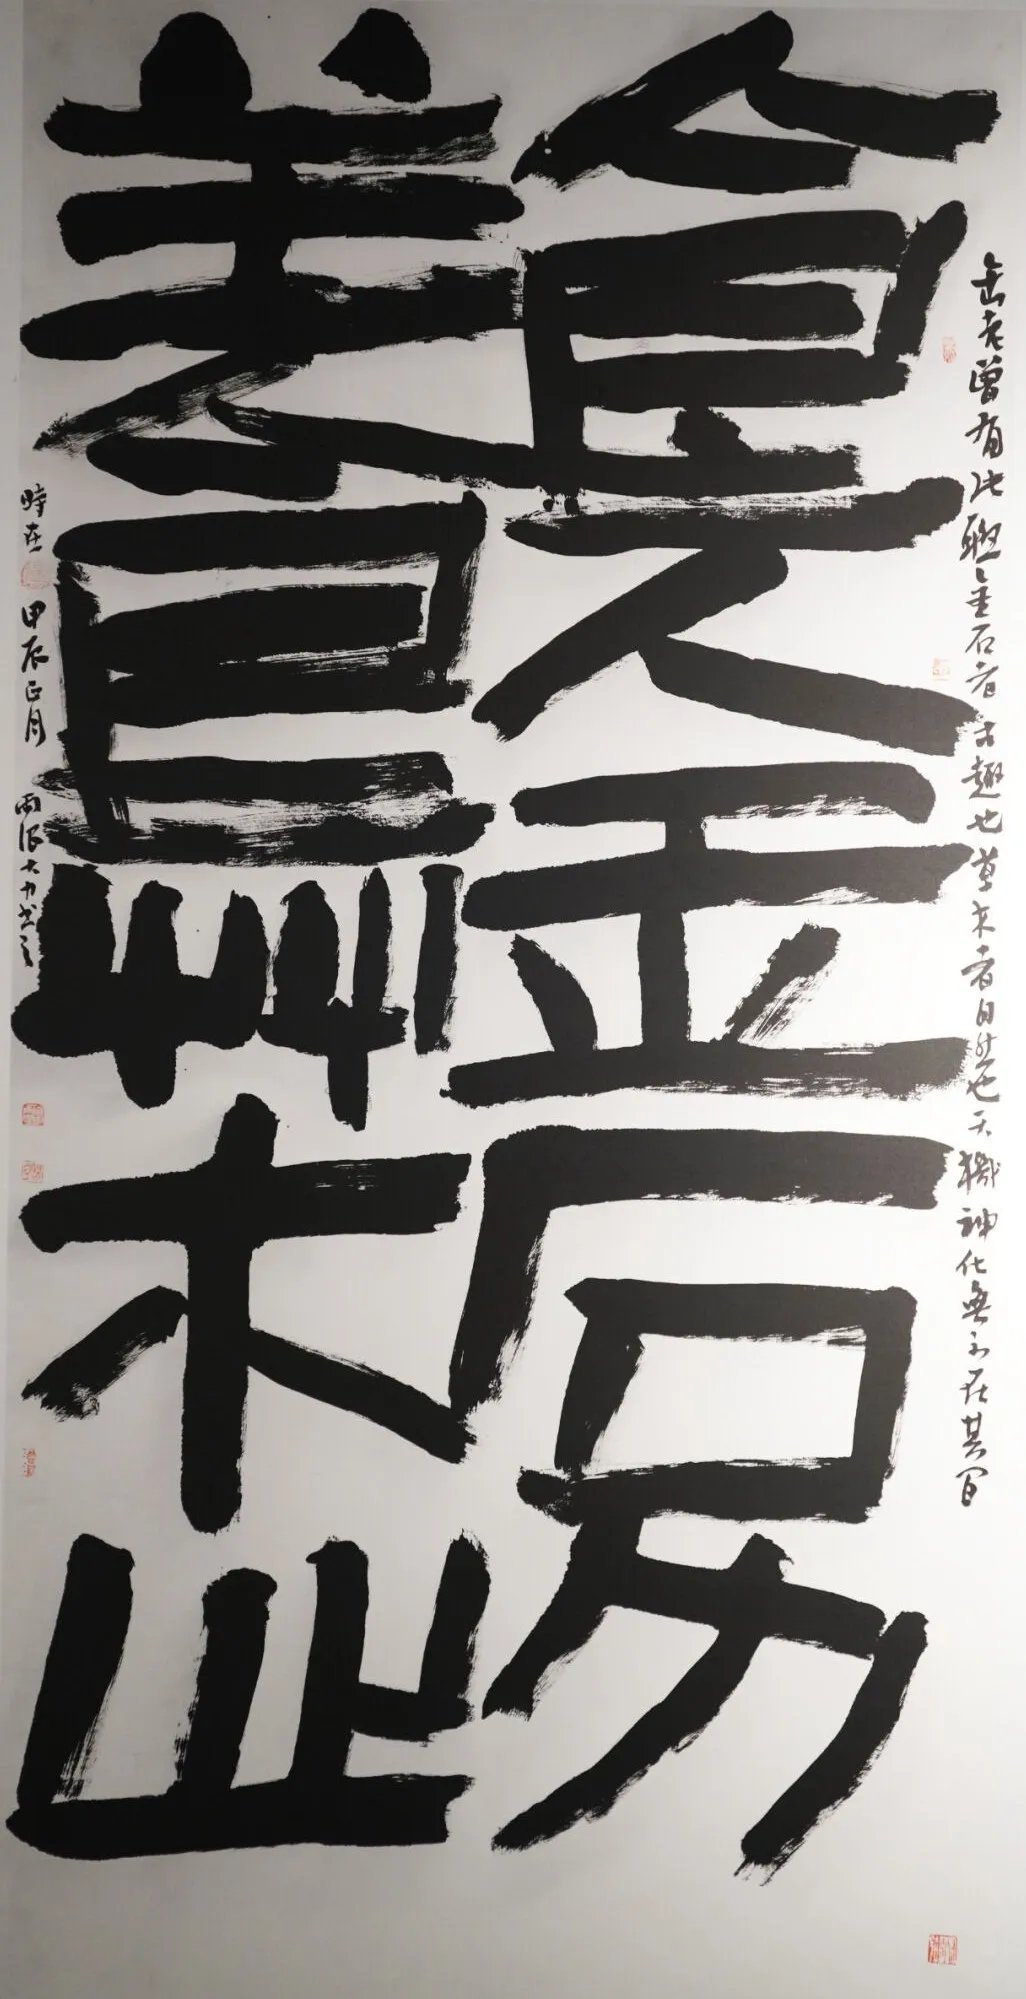 缶老曾有此聯金石者古趣也草木者自然也天機神化無不在其間
食金石力
養艸木心
時在甲辰正月